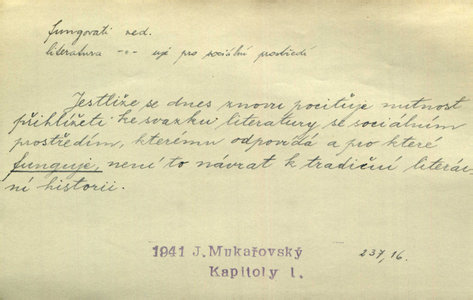 fungovati ned.
literatura --- uje pro sociální prostředí
Jestliže se dnes znovu pociťuje nutnost
přihlížeti ke svazku literatury se sociálním
prostředím, kterému odpovídá a pro které
funguje, není to návrat k tradiční literár-
ní historii.
1941 J. Mukařovský
Kapitoly I.
237,16.